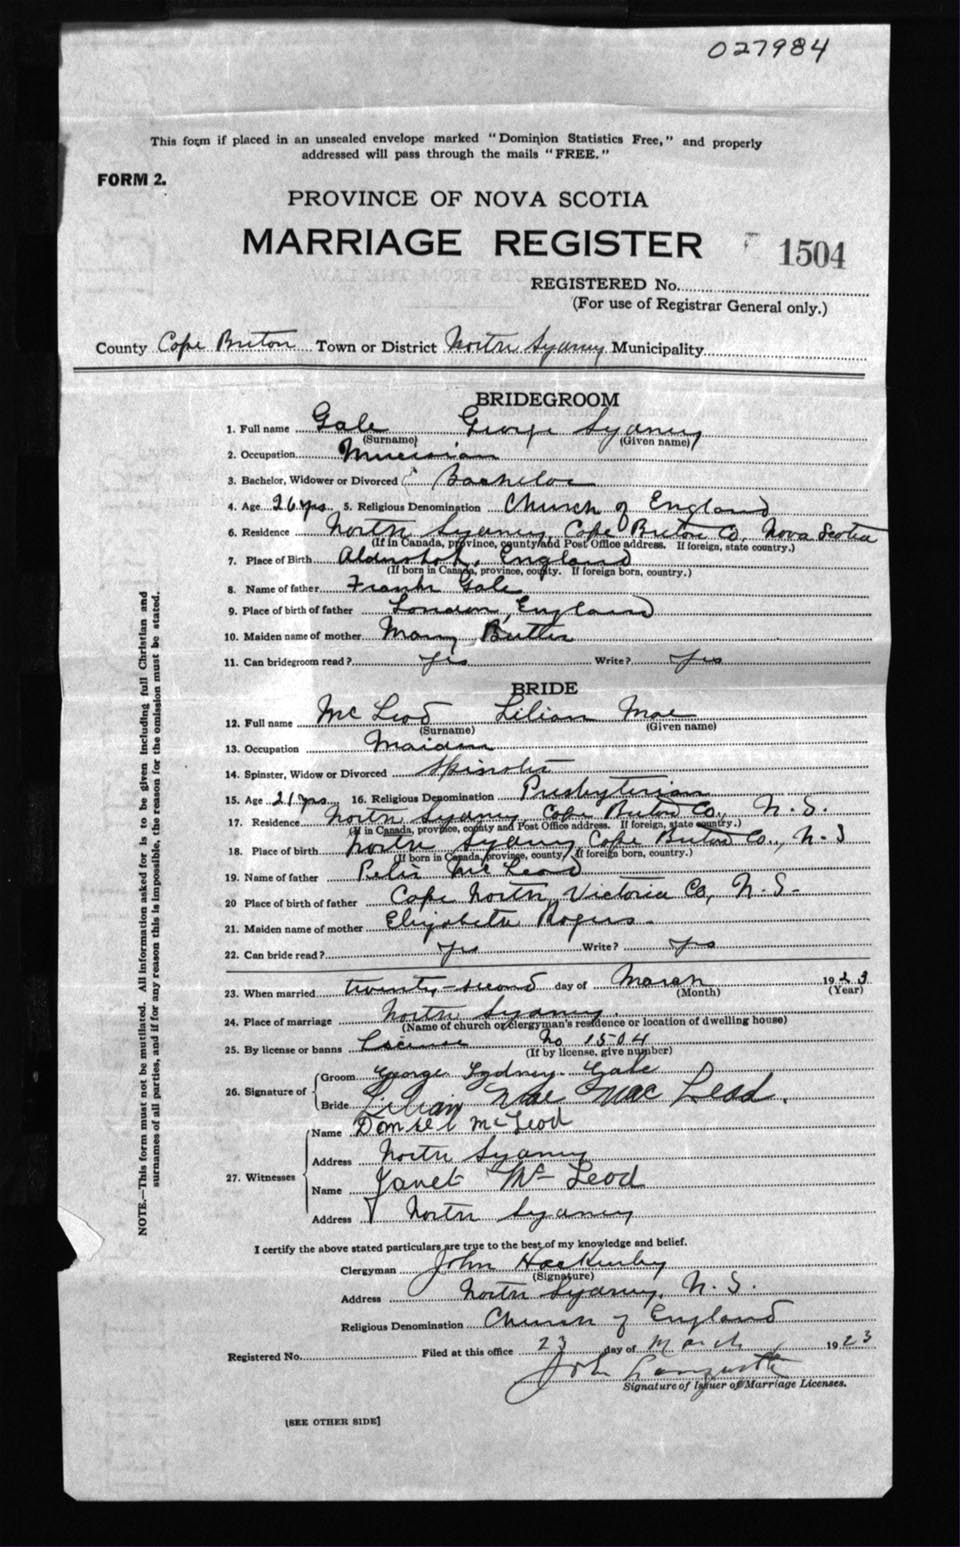 027984
This form if placed in an unsealed envelope marked "Dominion Statistics Free," and properly
addressed will pass through the mails "FREE."
FORM 2.
PROVINCE OF NOVA SCOTIA
MARRIAGE REGISTER 1504
REGISTERED No.
(For use of Registrar General only.)
County Cape Breton Town or District North Sydney Municipality
BRIDEGROOM
1. Full name Gale George Sydney
(Surname) (Given name)
2. Occupation Musician
3. Bachelor, Widower or Divorced Bachelor
4. Age 26 yrs. 5. Religious Denomination Church of England
6. Residence North Sydney, Cape Breton Co, Nova Scotia
(If in Canada, province, county and Post Office address. If foreign, state country.)
7. Place of Birth England
(If born in Canada, province, county. If foreign born, country.)
8. Name of father Frank Gale
9. Place of birth of father London, England
10. Maiden name of mother Mary Butler
11. Can bridegroom read? yes Write? yes
BRIDE
12. Full name McLeod Lilian Mae
(Surname) (Given name)
13. Occupation Maiden
14. Spinster, Widow or Divorced Spinster
15. Age 21 yrs. 16. Religious Denomination Presbyterian
17. Residence North Sydney, Cape Breton Co., N.S.
(If in Canada, province, county and Post Office address. If foreign, state country.)
18. Place of birth North Sydney Cape Breton Co., N.S
(If born in Canada, province, county. If foreign born, country.)
19. Name of father Peter McLeod
20 Place of birth of father Cape North, Victoria Co, N.S.
21. Maiden name of mother Elizabeth Rogers.
22. Can bride read? yes Write? yes
23. When married twenty-second day of March 1923
(Month) (Year)
24. Place of marriage North Sydney.
(Name of church or clergyman's residence or location of dwelling house)
25. By license or banns License No 1504
(If by license, give number)
26. Signature of Groom George Sydney Gale
Bride Lilian Mae MacLeod.
27. Witnesses
Name McLeod
Address North Sydney
Name Janet McLeod
Address North Sydney
I certify the above stated particulars are true to the best of my knowledge and belief.
Clergyman John
(Signature)
Address North Sydney, N.S.
Religious Denomination Church of England
Registered No. Filed at this office 23 day of March 1923
John
Signature of Issuer of Marriage Licenses.
[SEE OTHER SIDE]
NOTE.—This form must not be mutilated. All information asked for is to be given including full Christian and
surnames of all parties, and if for any reason this is impossible, the reason for the omission must be stated.